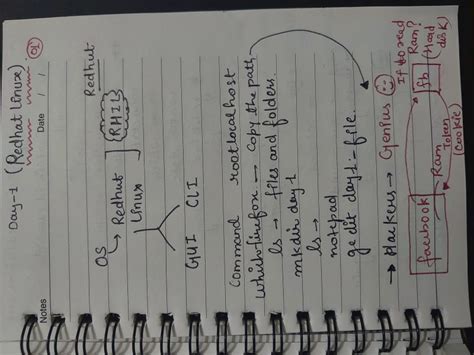 Notes
Date / /
Day-1 (Redhat Linux) 01
OS
→ Redhut
Linux
(RHIL)
Redhut
GUI CLI
Command root localhost
which firefox → copy the path
ls → files and folders.
mkdir day1
ls →
notepad
gedit day1-file.
→ Hackers → Genius
facebook
fb
Ram
Token
(Cookie)
If to read
Ram?
(Hard
disk)